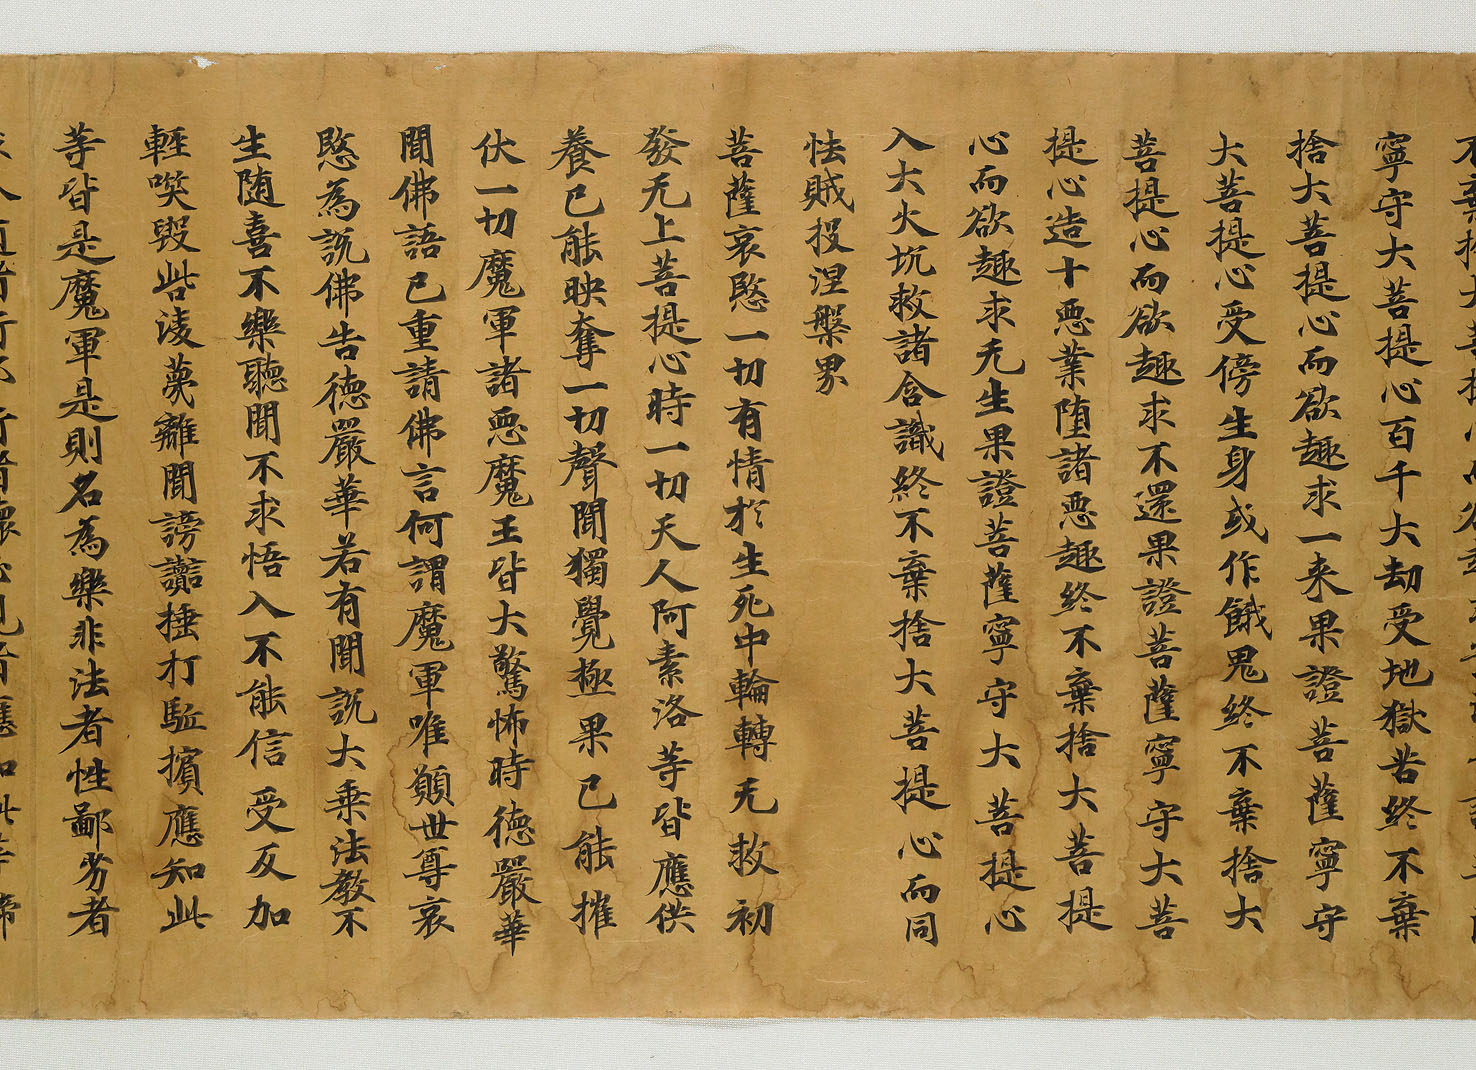 寧守大菩提心百千大劫受地獄苦終不棄
捨大菩提心而欲趣求一来果證菩薩寧守
大菩提心受傍生身或作餓鬼終不棄捨大
菩提心而欲趣求不還果證菩薩寧守大菩
提心造十惡業堕諸惡趣終不棄捨大菩提
心而欲趣求无生果證菩薩寧守大菩提心
入大火坑救諸含識終不棄捨大菩提心而同
怯賊投涅槃界
菩薩哀愍一切有情於生死中輪轉无救初
發无上菩提心時一切天人阿素洛等皆應供
養已能映奪一切聲聞獨覺極果已能摧
伏一切魔軍諸惡魔王皆大驚怖時德嚴華
聞佛語已重請佛言何謂魔軍唯願世尊哀
愍為說佛告德嚴華若有聞說大乗法教不
生随喜不樂聽聞不求悟入不能信受反加
輕唉毀呰淩蔑離間謗讟捶打駈擯應知此
等皆是魔軍是則名為樂非法者性鄙劣者